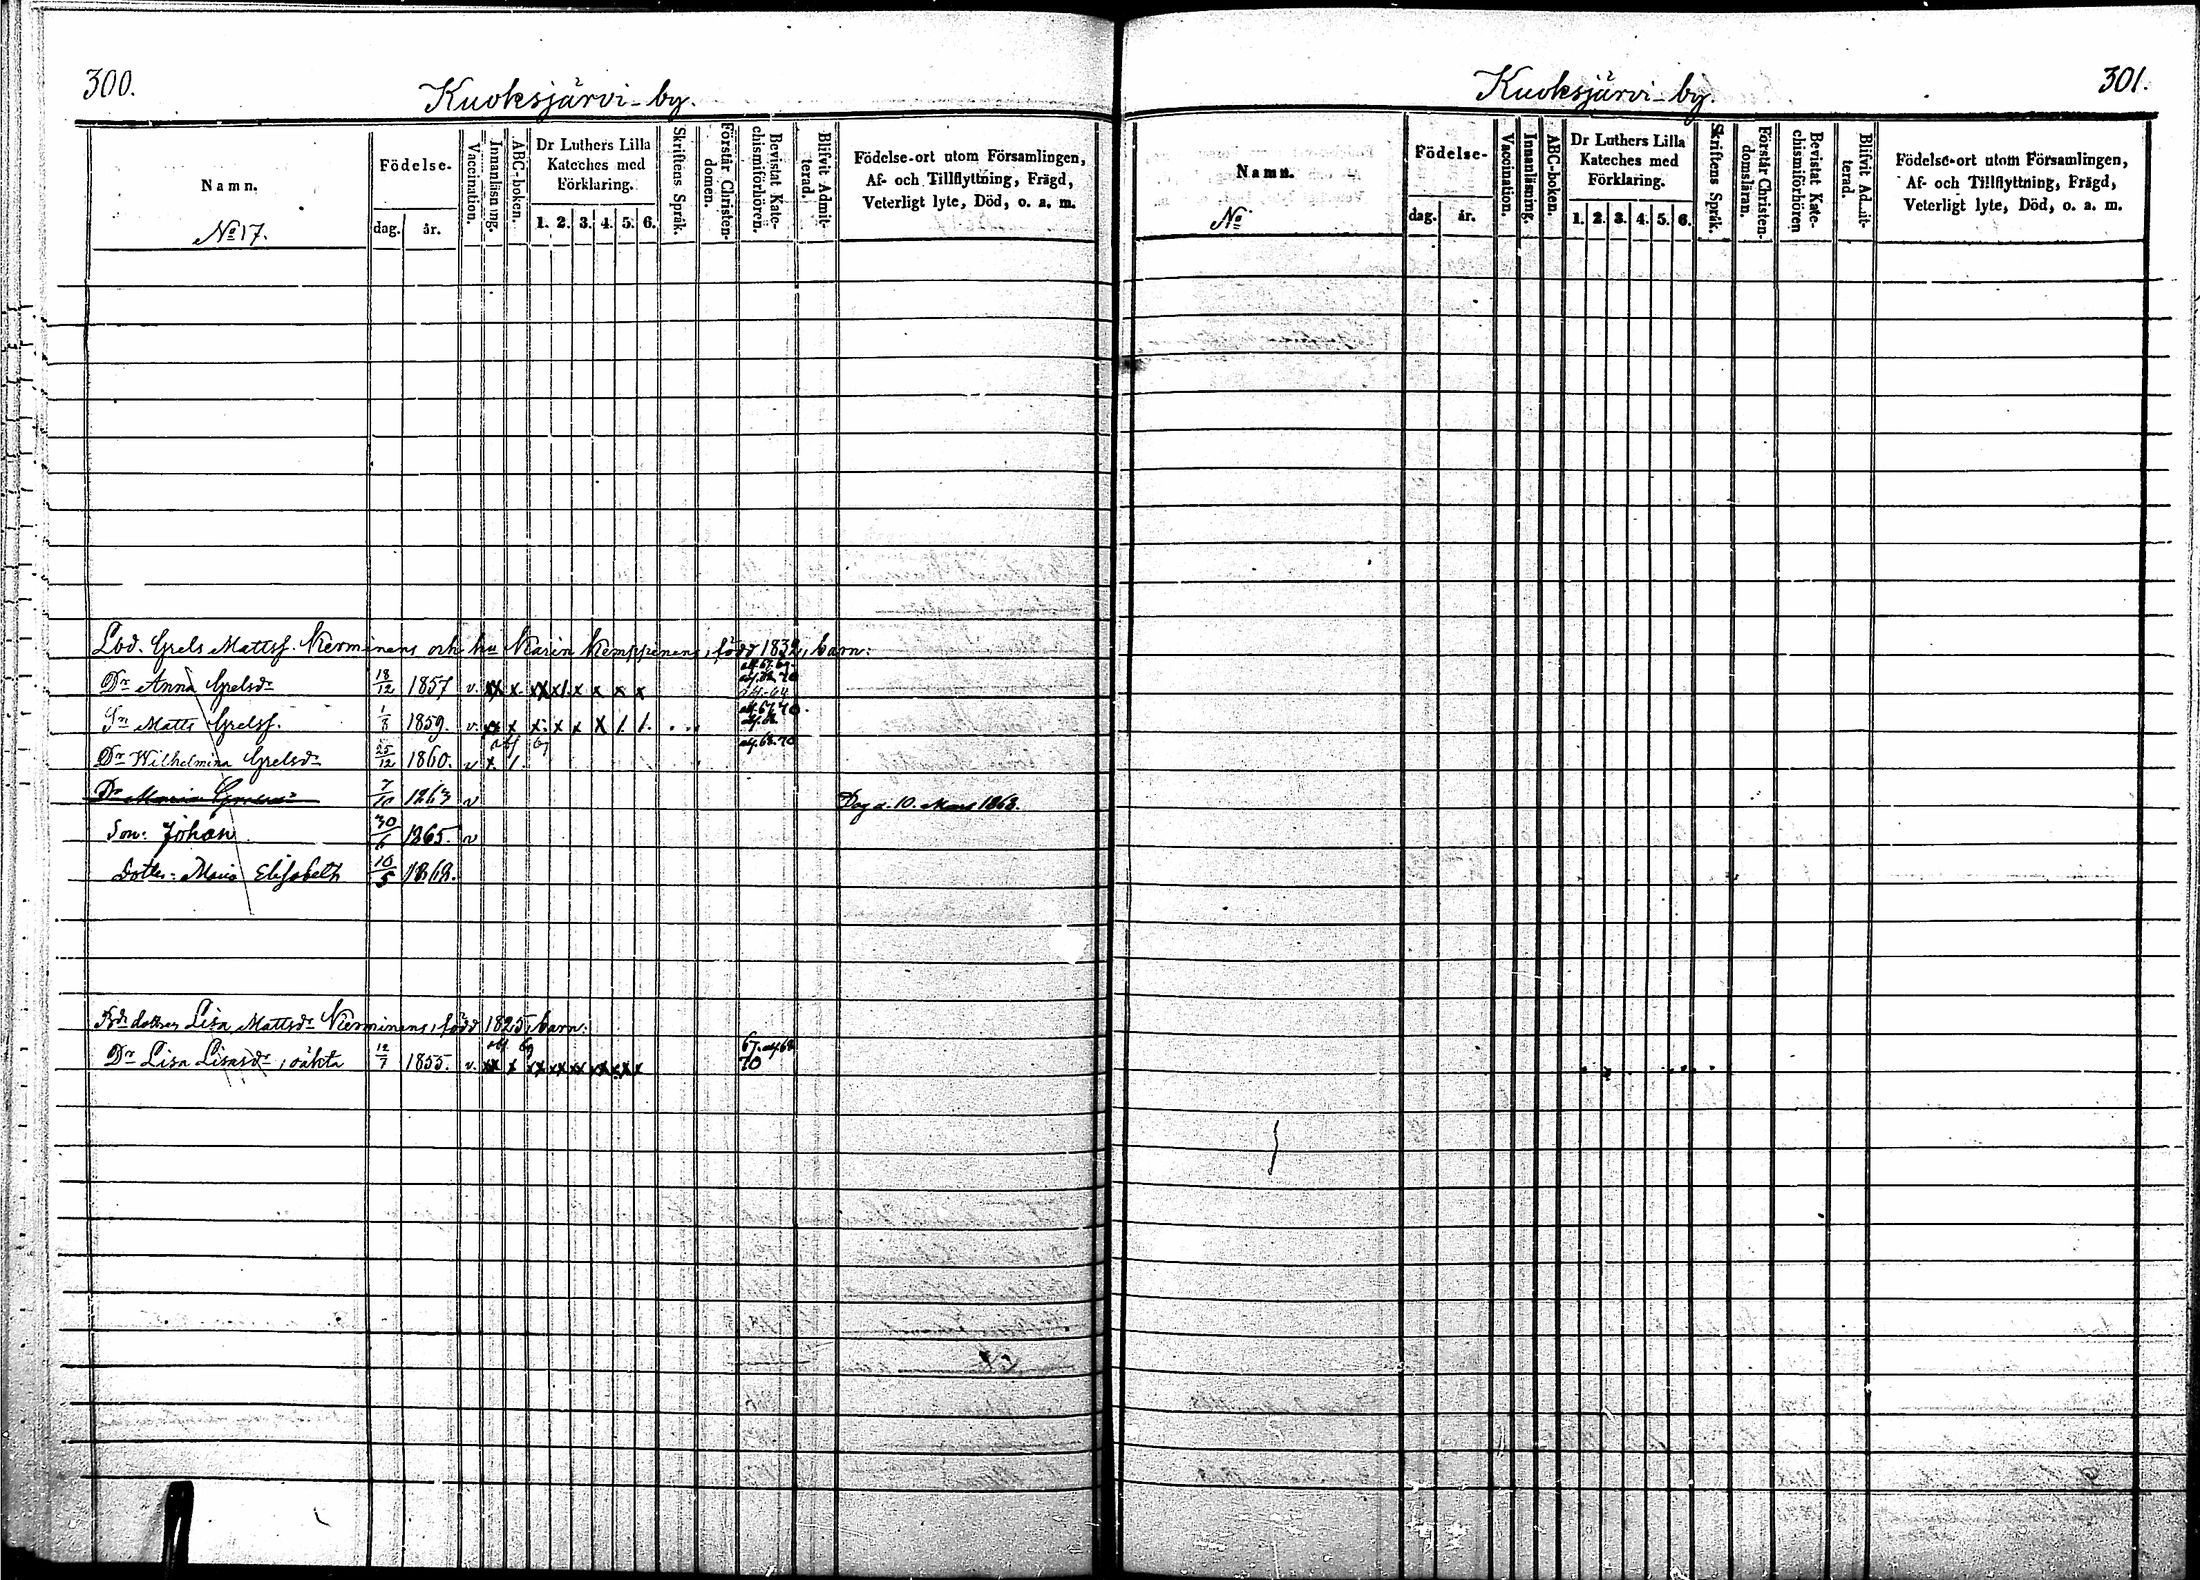 300.
Kuoksjärvi by.
Namn.
No 17.
Födelse-
dag.
år.
Vaccination.
Innanläsning.
ABC-boken.
Dr Luthers Lilla
Kateches med
Förklaring.
1. 2. 3. 4. 5. 6.
Skriftens Språk.
Förstår Christen-
domen.
Bevistat Kate-
chismiförhören.
Blifvit Admit-
terad.
Födelse-ort utom Församlingen,
Af- och Tillflyttning, Frägd,
Veterligt lyte, Död, o. a. m.
Lbd. Grels Mattsf. Nierminens och hu Karin Kemppinens, född 1832, barn:
Dr Anna Grelsdr 18/12 1857 v. xx x. xx x/. x x x x
Sn Matts Grelsf. 1/8 1859. v. xx x x. x x x /. /.
Dr Wilhelmina Grelsdr 25/12 1860. v x. /.
Dr Maria 7/10 1863 v Dog d. 10. Mars 1868.
Son: Johan 30/6 1865. v
Dotter: Maria Elisabeth 10/5 1868.
Bdr dottren Lisa Mattsdr Nierminens, född 1825, barn:
Dr Lisa Lisasdr, oäkta 12/7 1855. v. xx x xx xx xx xx xx x 70
301.
Kuoksjärvi by.
Namn.
No
Födelse-
dag.
år.
Vaccination.
Innanläsning.
ABC-boken.
Dr Luthers Lilla
Kateches med
Förklaring.
1. 2. 3. 4. 5. 6.
Skriftens Språk.
Förstår Christen-
domsläran.
Bevistat Kate-
chismiförhören
Blifvit Admit-
terad.
Födelse-ort utom Församlingen,
Af- och Tillflyttning, Frägd,
Veterligt lyte, Död, o. a. m.